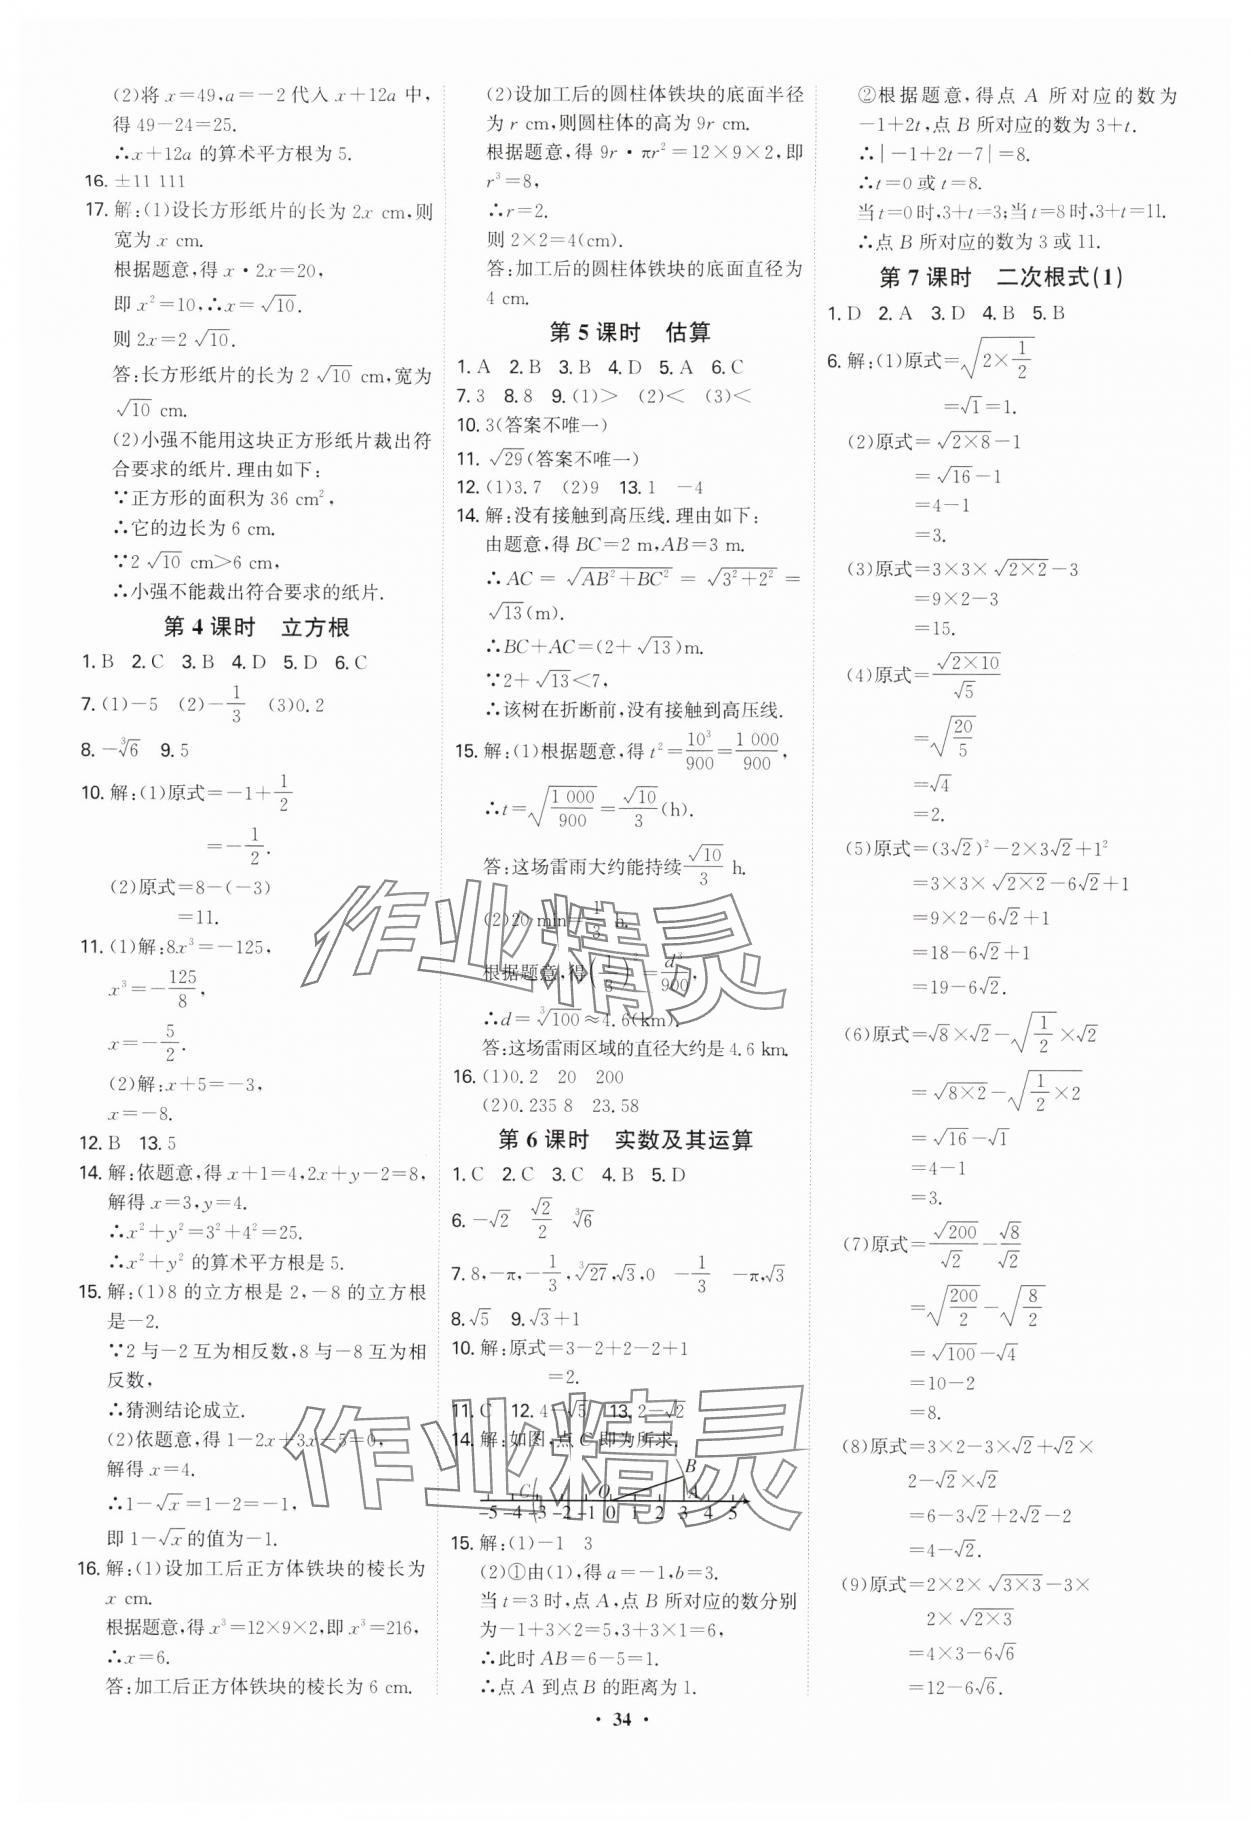 (2)将 x=49,a=-2 代入 x+12a 中,
得 49-24=25.
∴x+12a 的算术平方根为 5.
16. ±11 111
17. 解:(1)设长方形纸片的长为 2x cm,则
宽为 x cm.
根据题意,得 x·2x=20,
即 x²=10,∴x=√10.
则 2x=2√10.
答:长方形纸片的长为 2√10 cm,宽为
√10 cm.
(2)小强不能用这块正方形纸片裁出符
合要求的纸片.理由如下:
∵正方形的面积为 36 cm²,
∴它的边长为 6 cm.
∵2√10 cm>6 cm.
∴小强不能裁出符合要求的纸片.
第 4 课时 立方根
1. B 2. C 3. B 4. D 5. D 6. C
7. (1)-5 (2)-1/3 (3)0.2
8. -∛6 9. 5
10. 解:(1)原式=-1+1/2
=-1/2.
(2)原式=8-(-3)
=11.
11. (1)解:8x³=-125,
x³=-125/8,
x=-5/2.
(2)解:x+5=-3,
x=-8.
12. B 13. 5
14. 解:依题意,得 x+1=4,2x+y-2=8,
解得 x=3,y=4.
∴x²+y²=3²+4²=25.
∴x²+y² 的算术平方根是 5.
15. 解:(1)8 的立方根是 2,-8 的立方根
是-2.
∵2 与-2 互为相反数,8 与-8 互为相
反数,
∴猜测结论成立.
(2)依题意,得 1-2x+3x-5=0,
解得 x=4.
∴1-√x=1-2=-1,
即 1-√x的值为-1.
16. 解:(1)设加工后正方体铁块的棱长为
x cm.
根据题意,得 x³=12×9×2,即 x³=216,
∴x=6.
答:加工后正方体铁块的棱长为 6 cm.
(2)设加工后的圆柱体铁块的底面半径
为 r cm,则圆柱体的高为 9r cm.
根据题意,得 9r·πr²=12×9×2,即
r³=8,
∴r=2.
则 2×2=4(cm).
答:加工后的圆柱体铁块的底面直径为
4 cm.
第 5 课时 估算
1. A 2. B 3. B 4. D 5. A 6. C
7. 3 8. 8 9. (1)> (2)< (3)<
10. 3(答案不唯一)
11. √29(答案不唯一)
12. (1)3.7 (2)9 13. 1 -4
14. 解:没有接触到高压线.理由如下:
由题意,得 BC=2 m,AB=3 m.
∴AC=√(AB²+BC²)=√(3²+2²)=
√13(m).
∴BC+AC=(2+√13)m.
∵2+√13<7,
∴该树在折断前,没有接触到高压线.
15. 解:(1)根据题意,得 t²=10³/900=1 000/900,
∴t=√(1 000/900)=√10/3(h).
答:这场雷雨大约能持续√10/3 h.
(2)20 min=1/3 h.
根据题意,得(1/3)²=d³/900,
∴d=∛100≈4.6(km).
答:这场雷雨区域的直径大约是 4.6 km.
16. (1)0.2 20 200
(2)0.235 8 23.58
第 6 课时 实数及其运算
1. C 2. C 3. C 4. B 5. D
6. -√2 √2/2 ∛6
7. 8,-π,-1/3,∛27,√3,0 -1/3 -π,√3
8. √5 9. √3+1
10. 解:原式=3-2+2-2+1
=2.
11. C 12. 4-√5 13. 2-√2
14. 解:如图,点 C 即为所求.
B
C O A
-5 -4 -3 -2 -1 0 1 2 3 4 5
15. 解:(1)-1 3
(2)①由(1),得 a=-1,b=3.
当 t=3 时,点 A,点 B 所对应的数分别
为-1+3×2=5,3+3×1=6,
∴此时 AB=6-5=1.
∴点 A 到点 B 的距离为 1.
②根据题意,得点 A 所对应的数为
-1+2t,点 B 所对应的数为 3+t.
∴|-1+2t-7|=8.
∴t=0 或 t=8.
当 t=0 时,3+t=3;当 t=8 时,3+t=11.
∴点 B 所对应的数为 3 或 11.
第 7 课时 二次根式(1)
1. D 2. A 3. D 4. B 5. B
6. 解:(1)原式=√(2×1/2)
=√1=1.
(2)原式=√(2×8)-1
=√16-1
=4-1
=3.
(3)原式=3×3×√(2×2)-3
=9×2-3
=15.
(4)原式=√(2×10)/√5
=√(20/5)
=√4
=2.
(5)原式=(3√2)²-2×3√2+1²
=3×3×√(2×2)-6√2+1
=9×2-6√2+1
=18-6√2+1
=19-6√2.
(6)原式=√8×√2-√(1/2)×√2
=√(8×2)-√(1/2×2)
=√16-√1
=4-1
=3.
(7)原式=√200/√2-√8/√2
=√(200/2)-√(8/2)
=√100-√4
=10-2
=8.
(8)原式=3×2-3×√2+√2×
2-√2×√2
=6-3√2+2√2-2
=4-√2.
(9)原式=2×2×√(3×3)-3×
2×√(2×3)
=4×3-6√6
=12-6√6.
· 34 ·
作业精灵
作业精灵